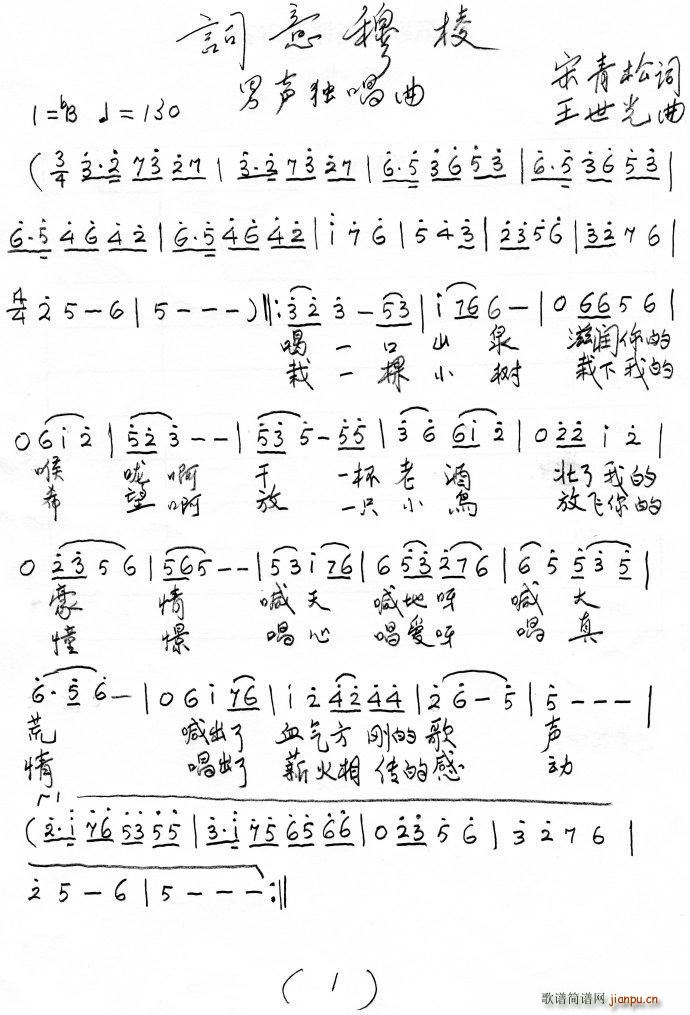 詞意穆棱
男声独唱曲
宋青松词
王世光曲
1=bB ♩=130
( 3/4 3·2 73 27 | 3·2 73 27 | 6·5 36 53 | 6·5 36 53 |
6·5 46 42 | 6·5 46 42 | i 7 6 | 5 4 3 | 23 56 | 32 7 6 |
4/4 2 5 - 6 | 5 - - - ) ‖: 32 3 - 53 | i 76 6 - | 0 66 5 6 |
喝一口山泉 滋润你的
栽一棵小树 栽下我的
0 6 i 2 | 52 3 - - | 53 5 - 55 | 3 6 6i 2 | 0 22 i 2 |
喉咙啊 干一杯老酒 壮了我的
希望啊 放一只小鸟 放飞你的
0 23 5 6 | 565 - - | 53 i 76 | 6 53 276 | 6 5 53 5 |
豪情 喊天 喊地呀 喊大
憧憬 唱心 唱爱呀 唱真
6·5 6 - | 0 6 i 76 | i 2 42 44 | 2 6 - 5 | 5 - - - |
荒 喊出了 血气方刚的歌声
情 唱出了 薪火相传的感动
( 2·i 76 53 55 | 3·i 75 65 66 | 0 23 5 6 | 3 2 7 6 |
2 5 - 6 | 5 - - - :‖
( 1 )
歌谱简谱网
jianpu.cn